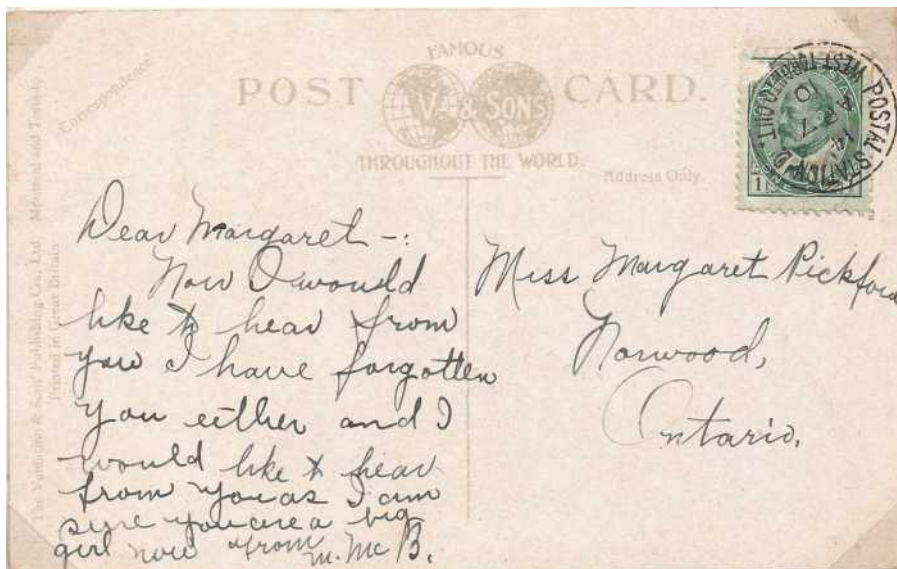 FAMOUS
POST CARD.
V. & SONS
THROUGHOUT THE WORLD.
Correspondence
Address Only.
The Valentine & Sons' Publishing Co., Ltd. Montreal and Toronto
Printed in Great Britain
POSTAL STATION D.
WEST TORONTO, ONT
10
1
Dear Margaret -:
Now I would
like to hear from
you I have forgotten
you either and I
would like to hear
from you as I am
sure you are a big
girl now from
M. Mc B.
Miss Margaret Pickford
Norwood,
Ontario.